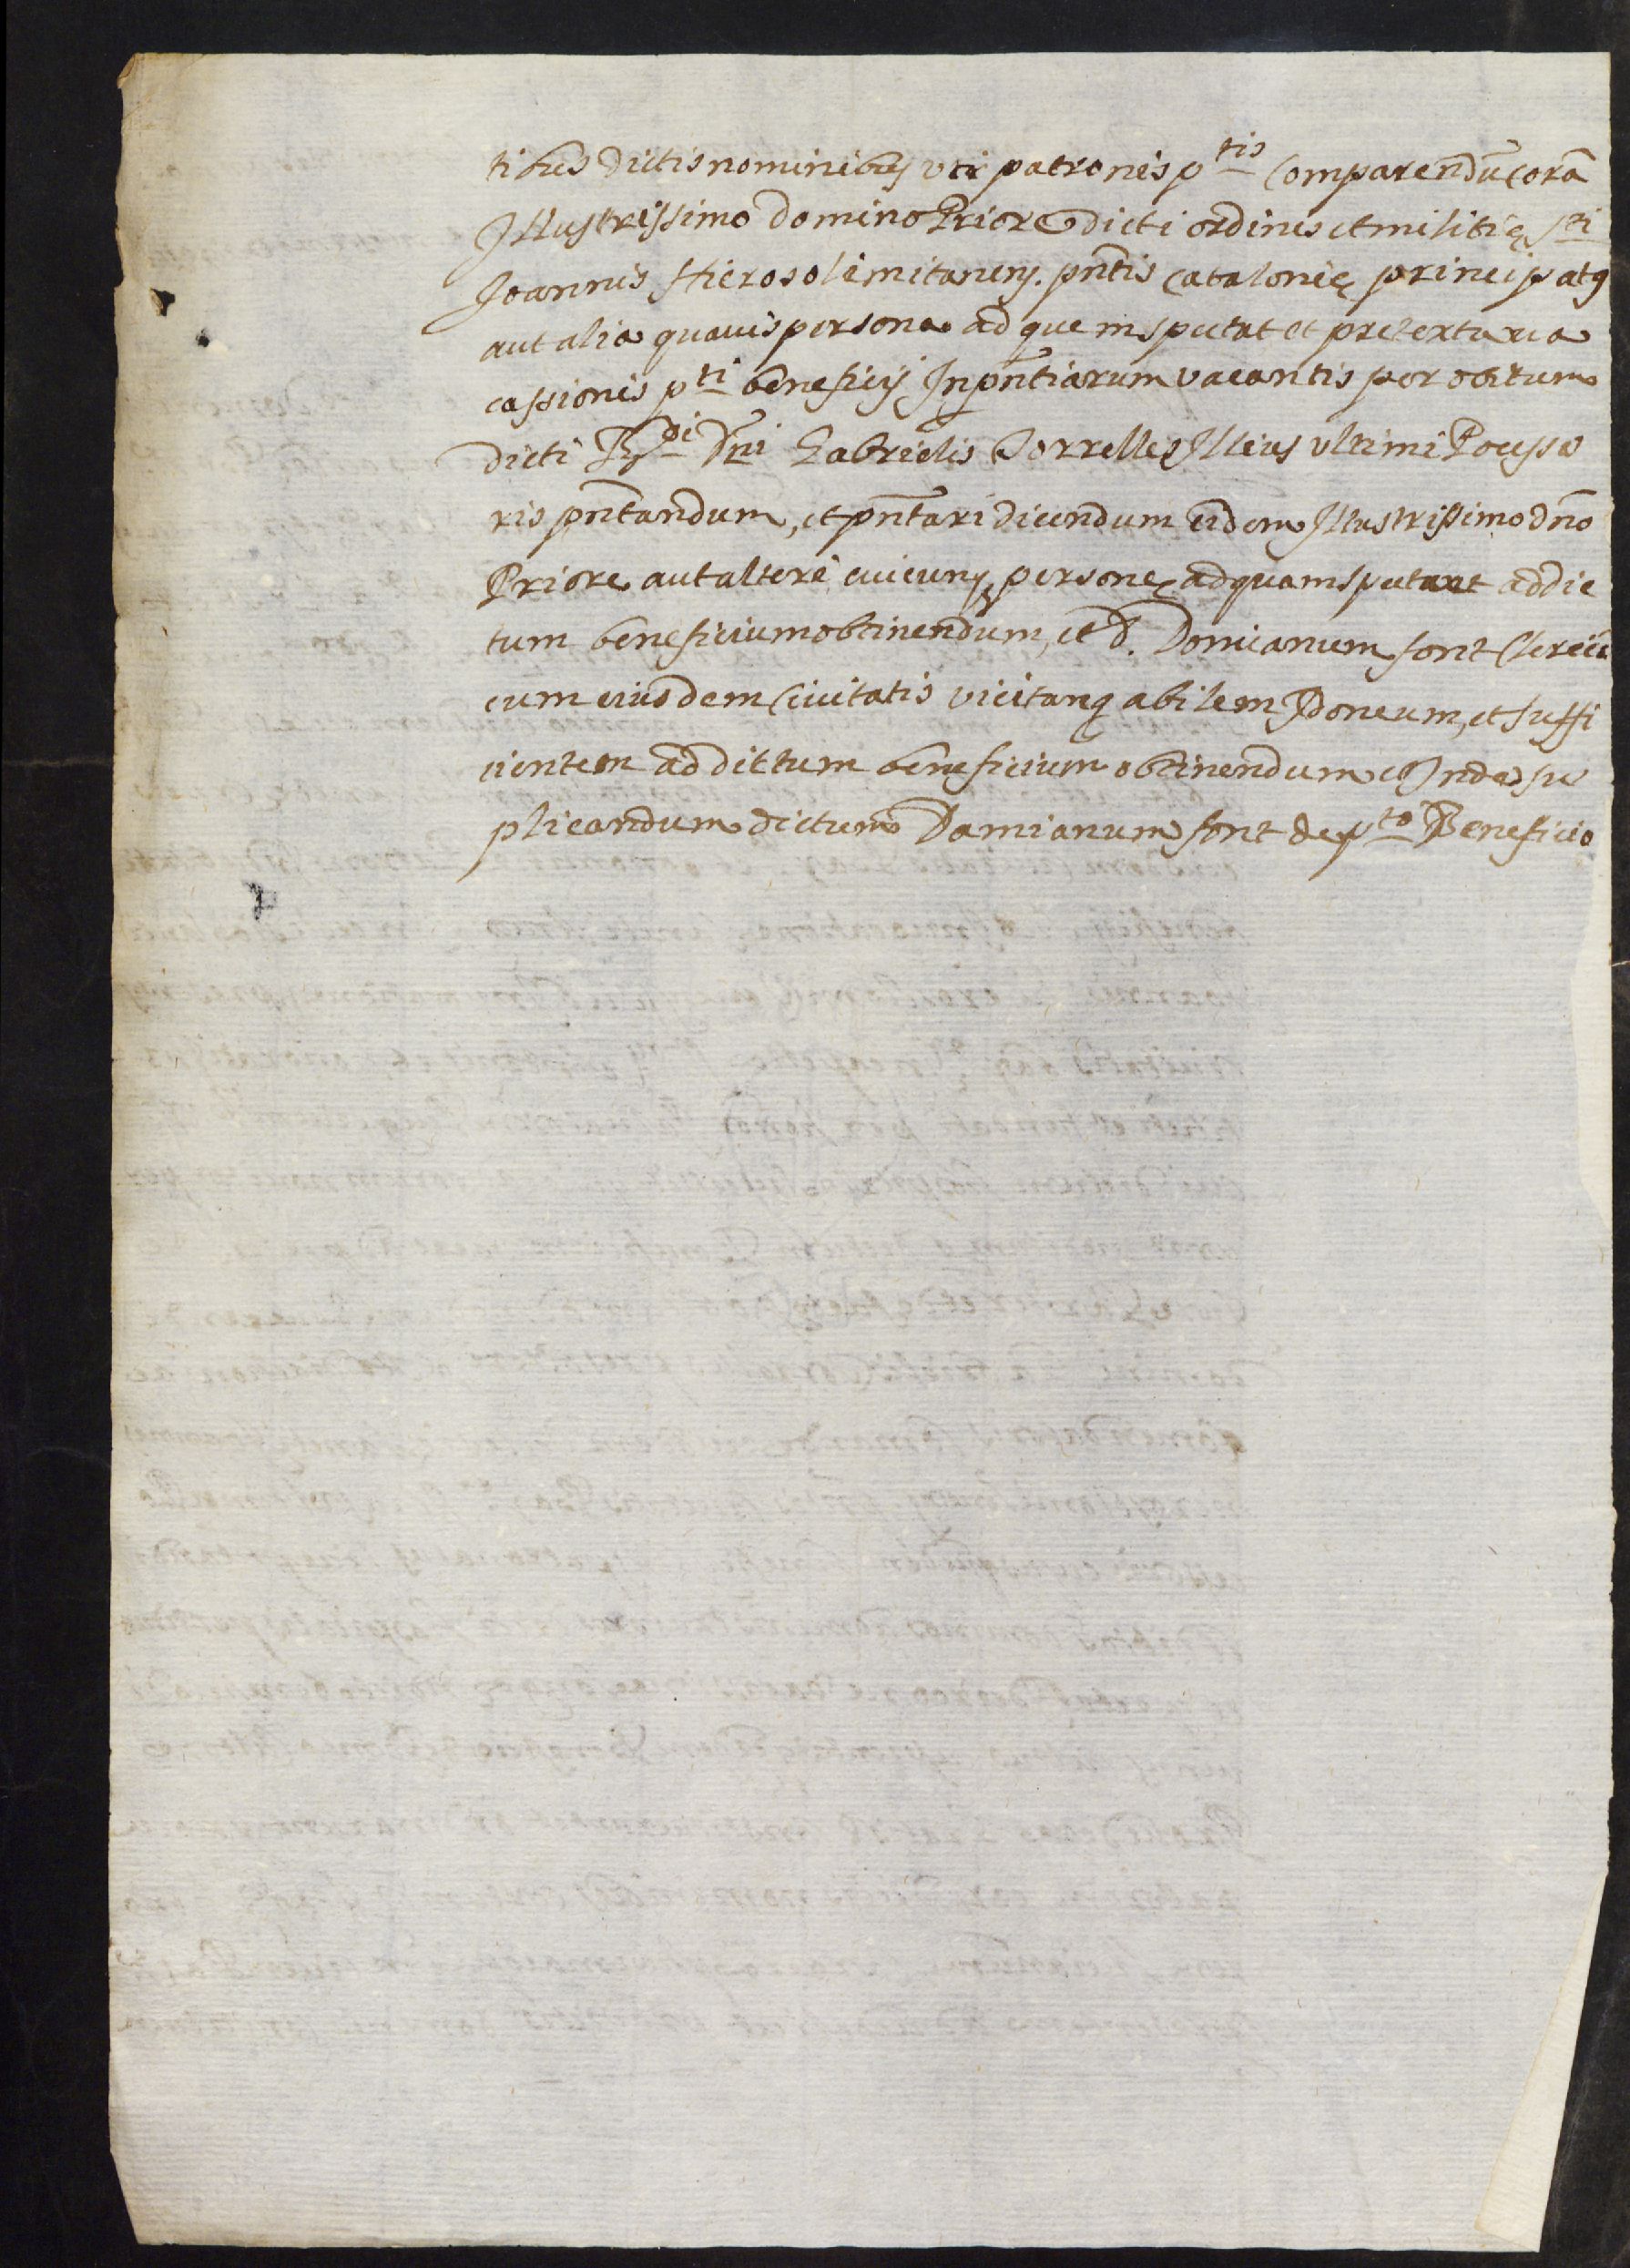 tibus dictis nominibus uti patronis p.tis comparendũ corã
Illustrissimo domino Priore dicti ordinis et militię s.ti
Joannis Hierosolimitaneñ. pñtis Catalonię principatꝰ
aut alia quauis persona ad quem spectat et pretextu va
cassionis p.ti beneficij Inpñtiarum vacantis per obitum
dicti R.di Dñi Gabrielis Torrelles Illius ultimi Poцesso
ris pñtandum, et pñtari dicendum eidem Illustrissimo dño
Priore aut alteri cuicunq personę ad quam spectaret ad dic
tum beneficium obtinendum, et d. Domianum font Clericũ
cum eiusdem Ciuitatis vicitanq abilem Idoneum, et suffi
cientem ad dictum beneficium obtinendum et Inde su
plicandum dictum Damianum font de p.to Beneficio